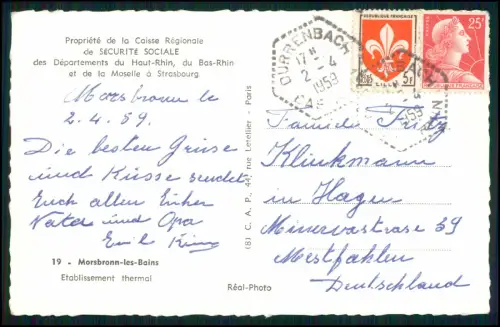 Propriété de la Caisse Régionale
de SÉCURITÉ SOCIALE
des Départements du Haut-Rhin, du Bas-Rhin
et de la Moselle à Strasbourg.
Morsbronn le
2.4.59
Die besten Grüsse
und Küsse sendet
Euch allen Eicher
Vater und Opa
Emil
19 - Morsbronn-les-Bains
Etablissement thermal
(8) C. A. P., 44, rue Letellier - Paris
Réal-Photo
DURRENBACH
17 H
2 - 4
1959
REPUBLIQUE FRANÇAISE
5F
LILLE
25F
Familie Fritz
Klinkmann
in Hagen
Minervastrasse 39
Westfahlen
Deutschland